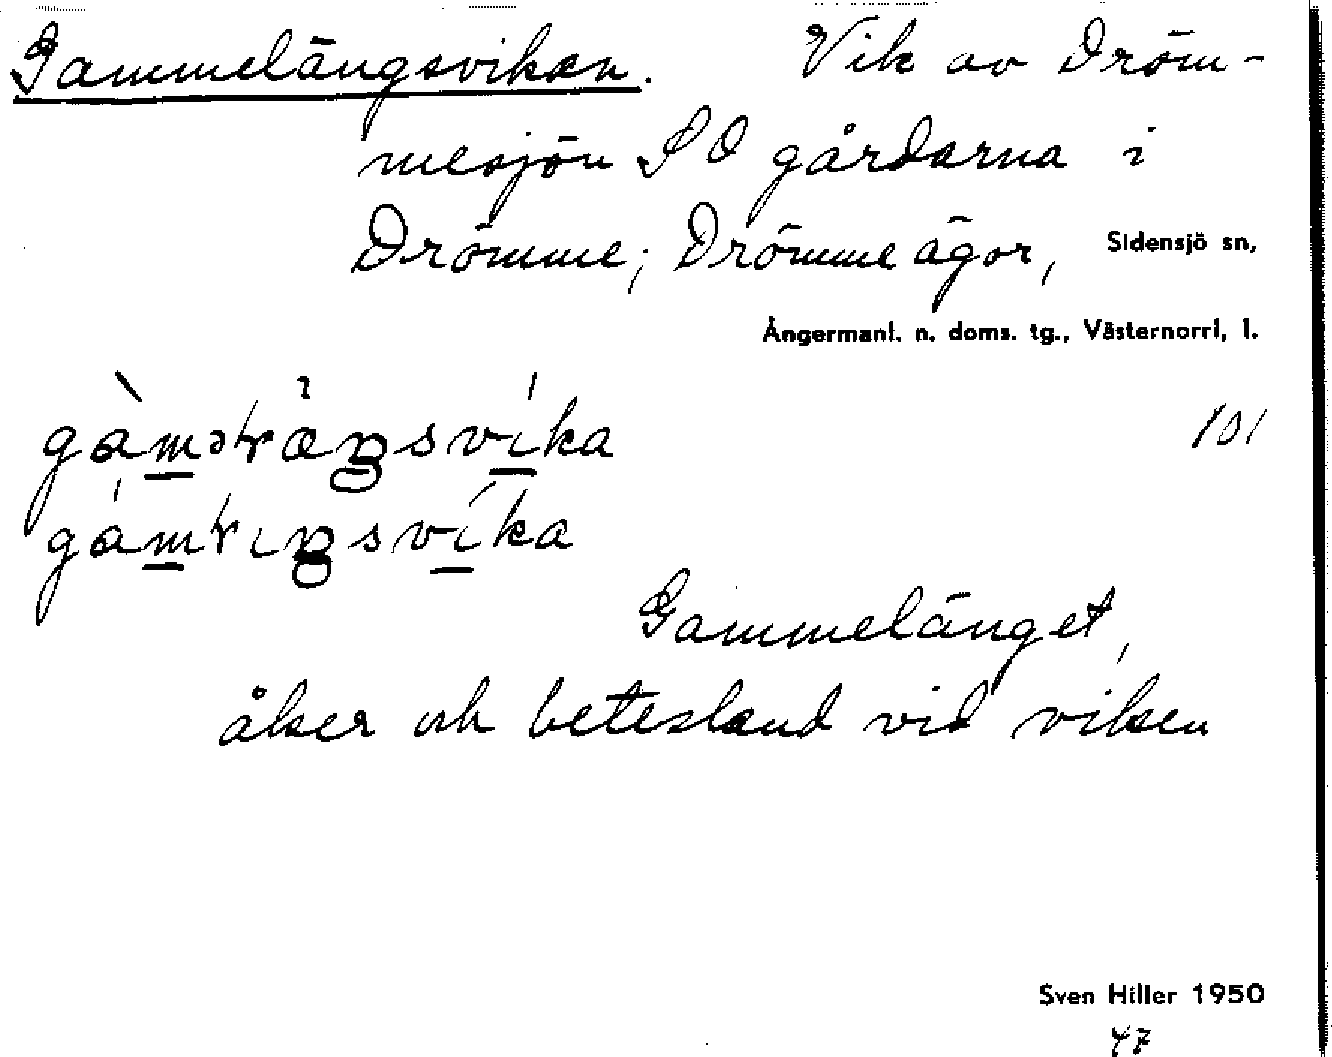 Gammelängsviken. Vik av Dröm-
mesjön SO gårdarna i
Drömme; Drömme ägor, Sidensjö sn,
Ångermanl. n. doms. tg., Västernorrl, l.
101
Gammelänget,
åker och betesland vid viken
Sven Hiller 1950
47